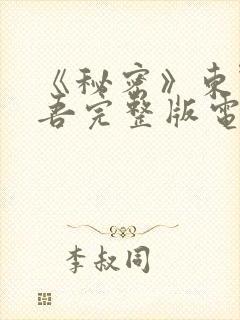 《秘密》東
吾完整版電
李叔同